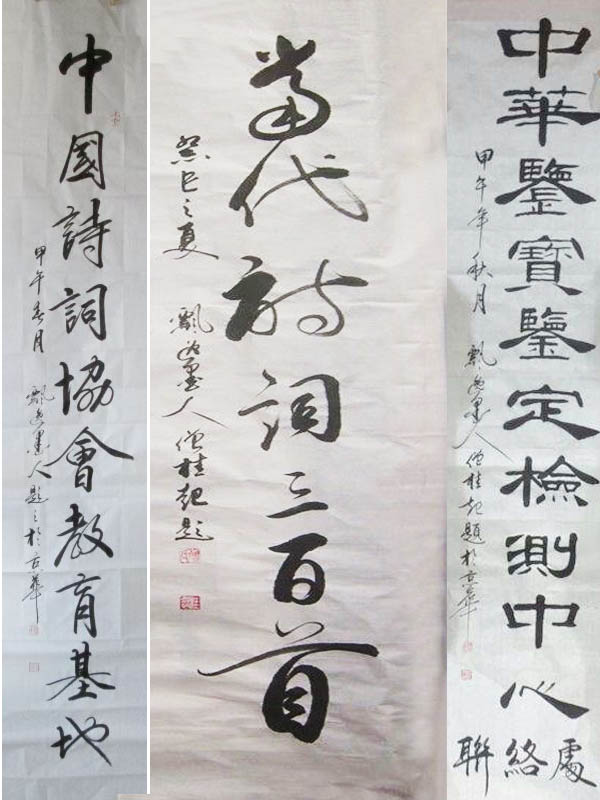 中國詩詞協會教育基地
甲午春月 飄逸墨人題之於京華
當代詩詞三百首
癸巳之夏 飄逸墨人 僧桂起題
中華鑒寶鑒定檢測中心
聯絡處
甲午年秋月 飄逸墨人僧桂起題於京華